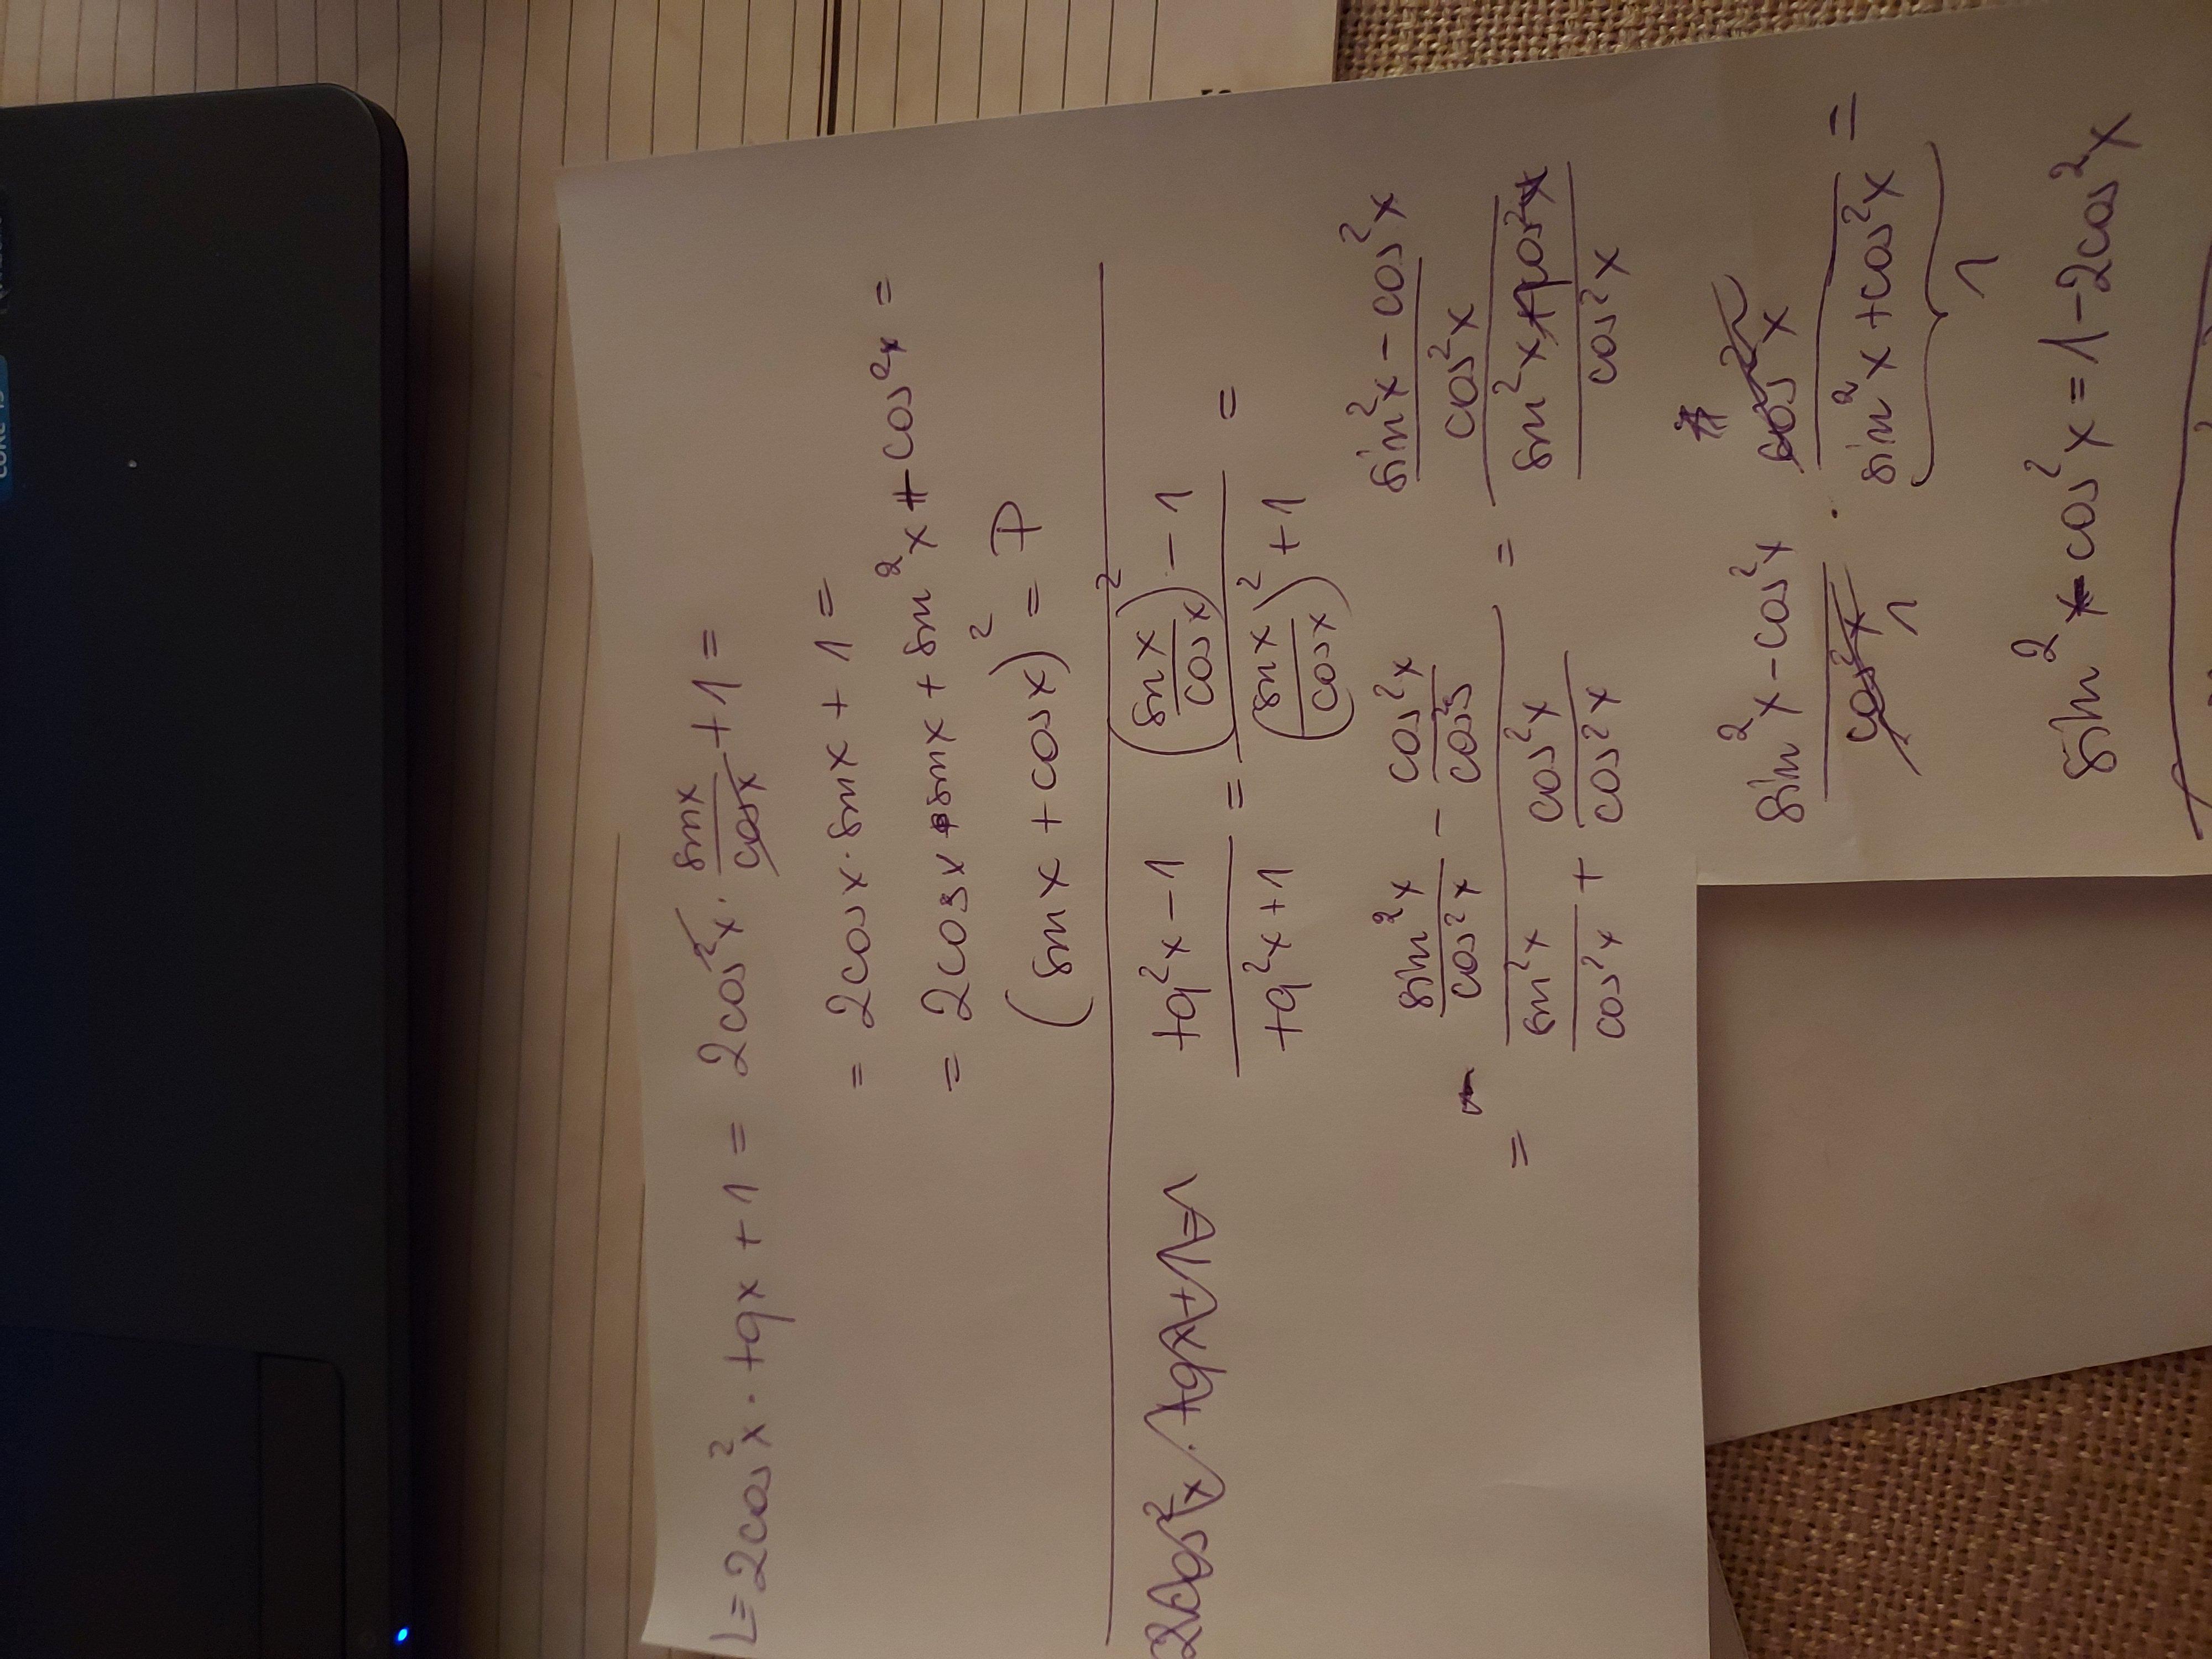 L = 2cos²x · tgx + 1 = 2cos²x · sinx/cosx + 1 =
= 2cosx · sinx + 1 =
= 2cosx · sinx + sin²x + cos²x =
(sinx + cosx)² = P
2cos²x · tgx + 1 = 1
(tg²x - 1)/(tg²x + 1) = ((sinx/cosx)² - 1)/((sinx/cosx)² + 1) =
= (sin²x/cos²x - cos²x/cos²x)/(sin²x/cos²x + cos²x/cos²x) = ((sin²x - cos²x)/cos²x)/((sin²x + cos²x)/cos²x)
(sin²x - cos²x)/cos²x · cos²x/(sin²x + cos²x) =
1
1
sin²x - cos²x = 1 - 2cos²x
CORE i5